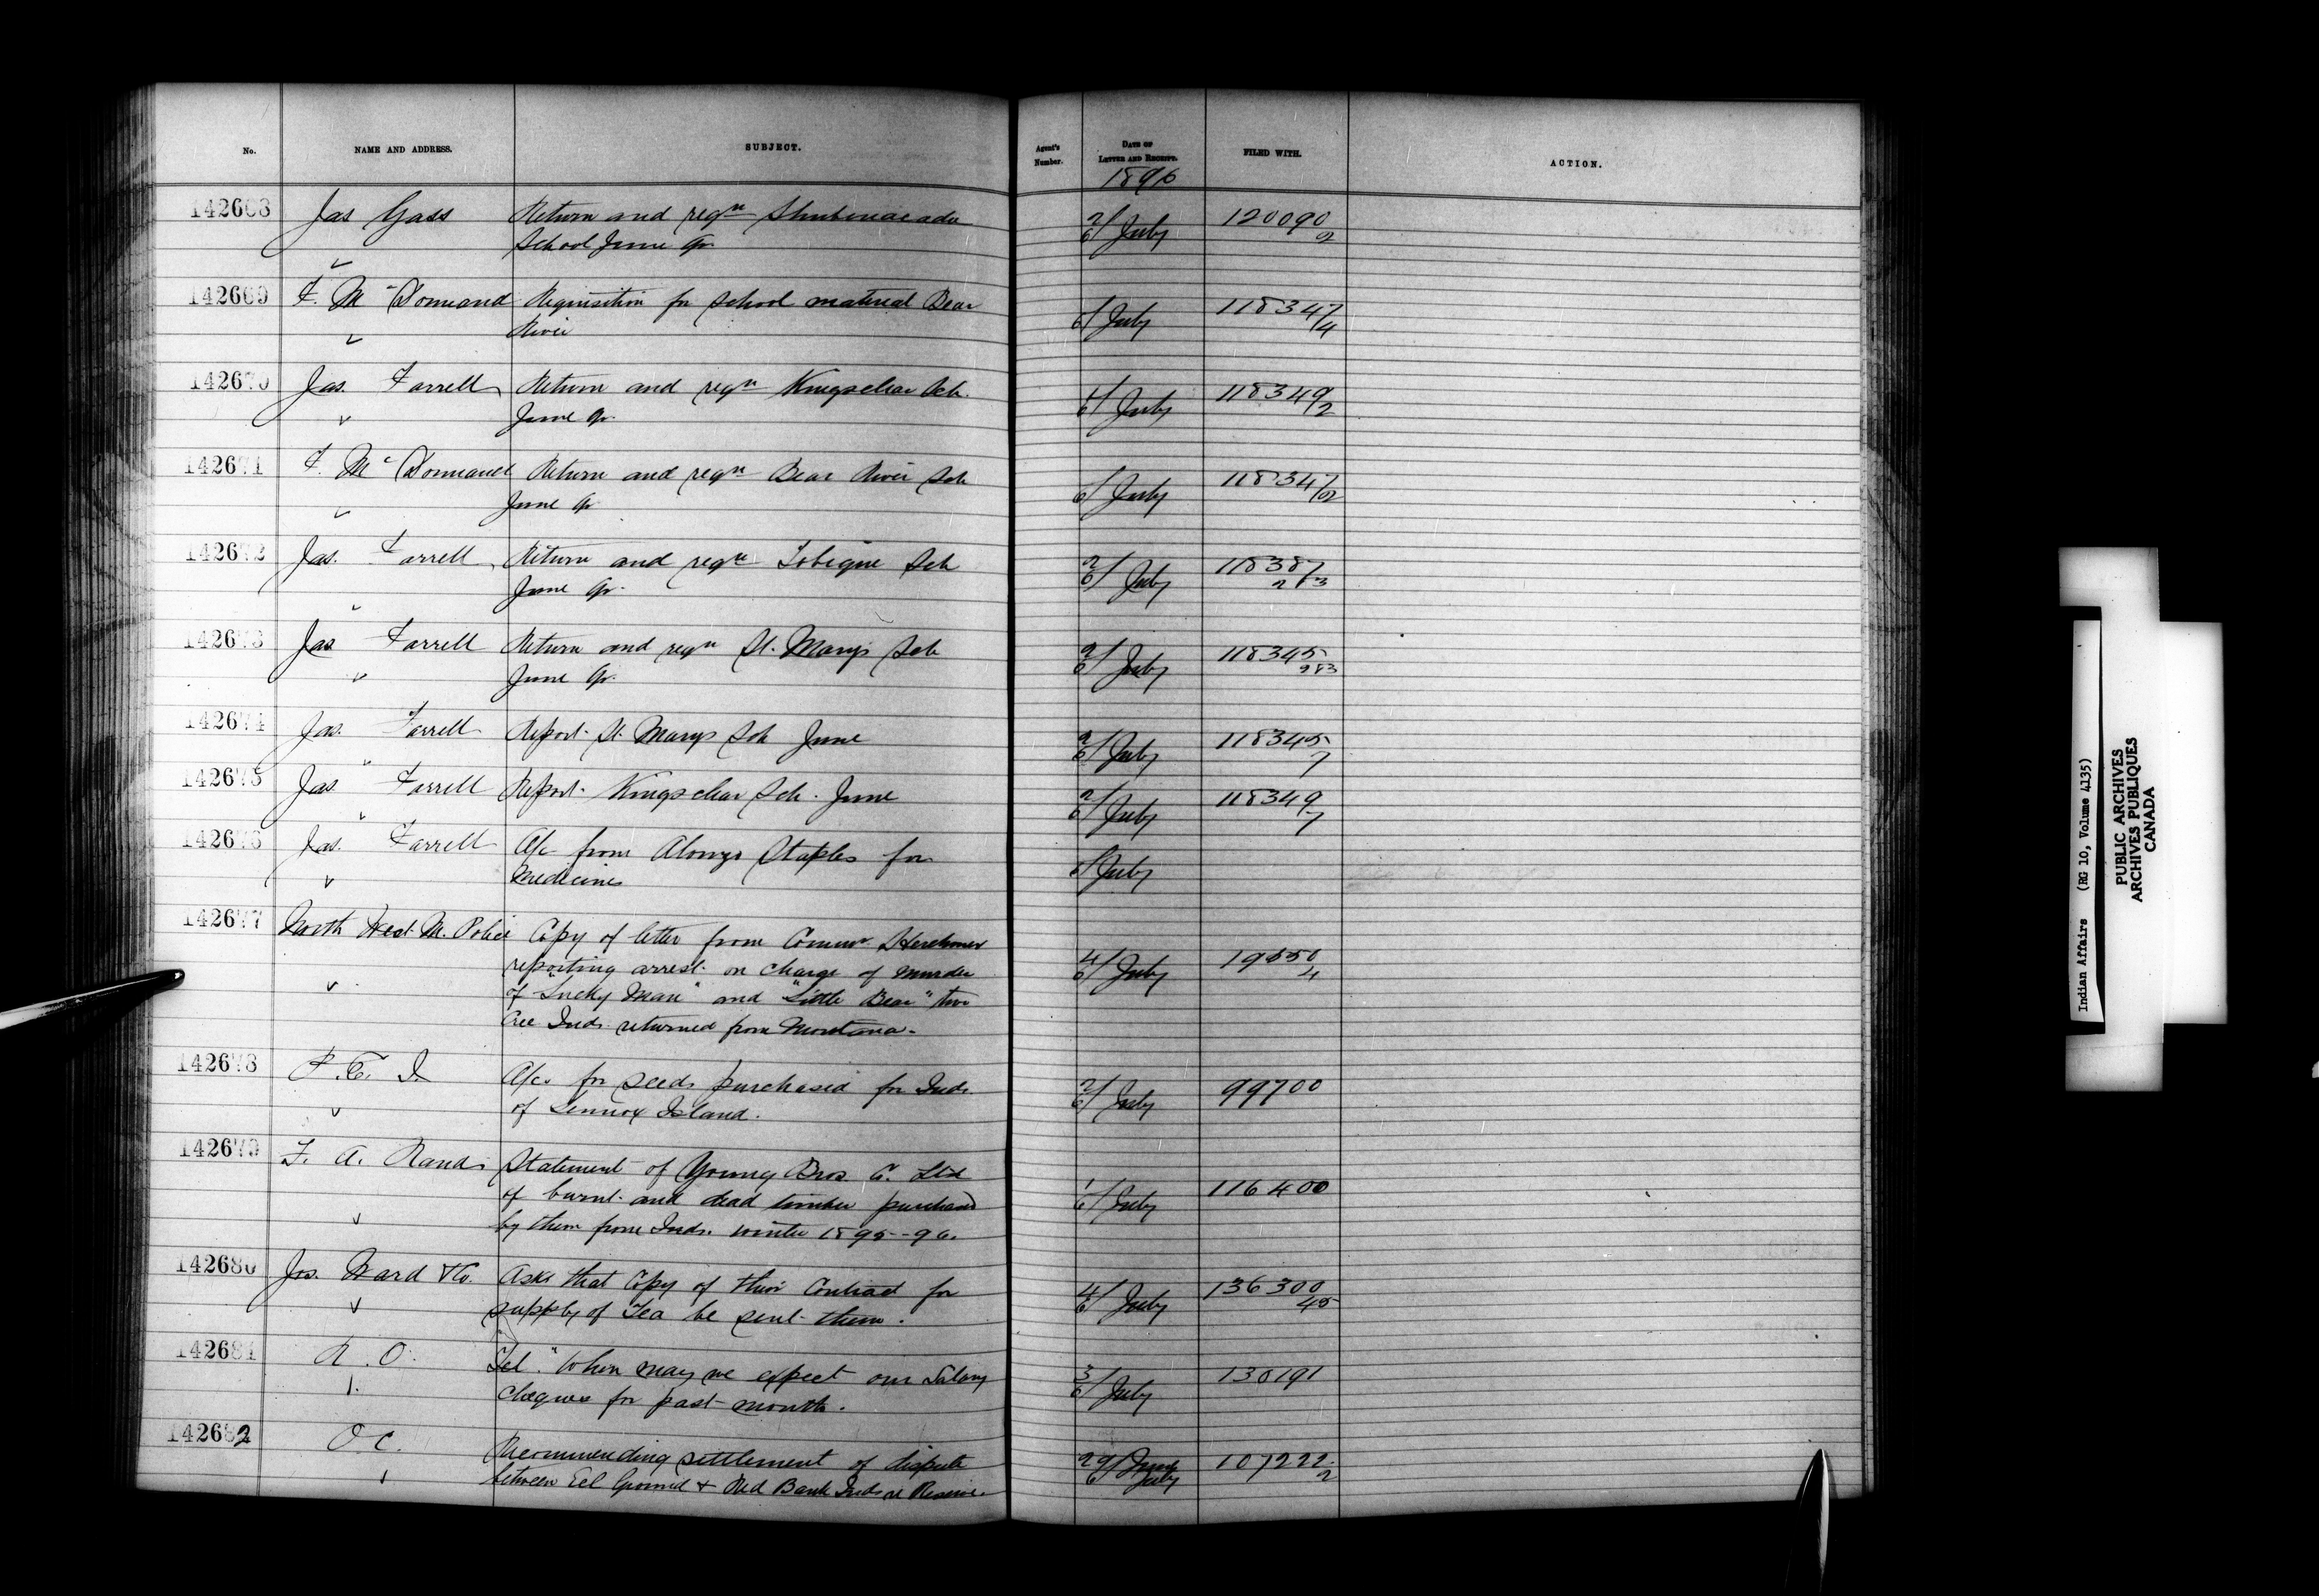 No. NAME AND ADDRESS. SUBJECT. Agent's Number. DATE OF LETTER AND RECEIPT. FILED WITH. ACTION.
1896
142668 Jas Gass Return and reqn Shubenacadie 2/6 July 120090/2
School June Qr.
142669 F. McDormand Requisition for School material Bear 1/6 July 118347/4
River
142670 Jas. Farrell Return and reqn Kingsclear Sch. 1/6 July 118349/2
June Qr.
142671 F. McDormand Return and reqn Bear River Sch 1/6 July 118347/2
June Qr
142672 Jas. Farrell Return and reqn Tobique Sch 2/6 July 118387
June Qr. 2 & 3
142673 Jas Farrell Return and reqn St. Marys Sch 2/6 July 118345
June Qr. 2 & 3
142674 Jas. Farrell Report St. Marys Sch June 2/6 July 118345/7
142675 Jas Farrell Report Kingsclear Sch. June 2/6 July 118349/7
142676 Jas. Farrell A/c from Alonzo Staples for 1/6 July
Medicines
142677 North West M. Police Copy of letter from Commr. Herchmer 4/6 July
reporting arrest on charge of murder
of "Lucky Man" and "Little Bear" two
Cree Inds. returned from Montana.
142678 P. E. I. A/cs for seeds purchased for Inds. 2/6 July 99700
of Lennox Island.
142679 F. A. Rand Statement of Young Bros Co. Ltd 1/6 July 116400
of burnt and dead timber purchased
by them from Inds. winter 1895-96.
142680 Jos. Ward & Co. Asks that Copy of their Contract for 4/6 July 136300/45
supply of Tea be sent them.
142681 R. O. Tel. "When may we expect our Salary 3/6 July 130191
cheques for past month.
142682 O. C. Recommending settlement of dispute 29/6 June July 107222/2
between Eel Ground & Red Bank Inds re Reserve.
Indian Affairs (RG 10, Volume 4135)
PUBLIC ARCHIVES
ARCHIVES PUBLIQUES
CANADA